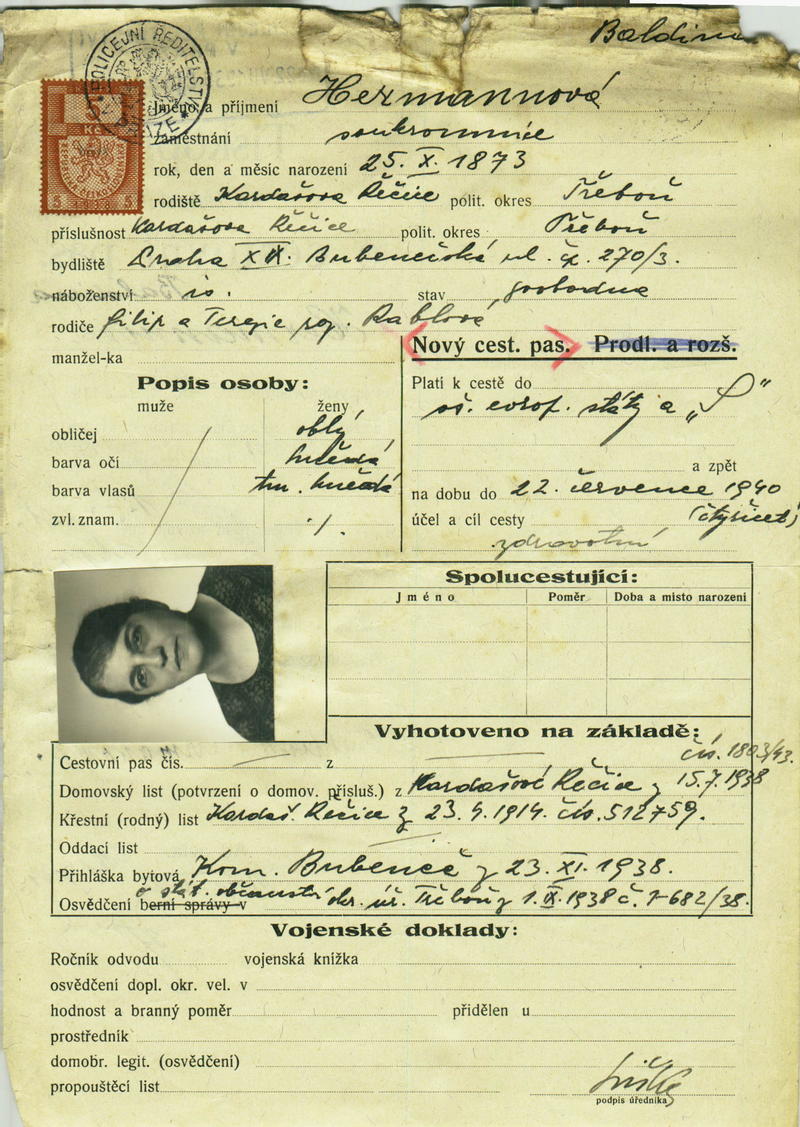 Baldina
POLICEJNÍ ŘEDITELSTVÍ
Kč
5 1938 5
Jméno a příjmení Hermannová
zaměstnání soukromnice
rok, den a měsíc narození 25. X. 1873
rodiště Kardašova Řečice polit. okres Třeboň
příslušnost Kardašova Řečice polit. okres Třeboň
bydliště Praha XIX. Bubenečská ul. č. 270/3.
náboženství is. stav svobodna
rodiče Filip a Terezie roz. Rablová
manžel-ka
Nový cest. pas. Prodl. a rozš.
Popis osoby:
muže ženy
obličej oblý
barva očí hnědá
barva vlasů tm. hnědá
zvl. znam. ./.
Platí k cestě do
vš. evrop. státy a „S“
a zpět
na dobu do 22. července 1940
(čtyřicet)
účel a cíl cesty
zdravotní
Spolucestující:
Jméno Poměr Doba a místo narození
Vyhotoveno na základě:
Cestovní pas čís. — z — čís. 1803/43.
Domovský list (potvrzení o domov. přísluš.) z Kardašově Řečice z 15.7.1938
Křestní (rodný) list Kardaš. Řečice z 23. 4. 1914. čís. 512759.
Oddací list
Přihláška bytová Kom. Bubeneč z 23. XI. 1938.
o stát. občanství
Osvědčení berní správy v okr. úř. Třeboň z 1. IX. 1938 č. 1-682/38.
Vojenské doklady:
Ročník odvodu vojenská knížka
osvědčení dopl. okr. vel. v
hodnost a branný poměr přidělen u
prostředník
domobr. legit. (osvědčení)
propouštěcí list
podpis úředníka